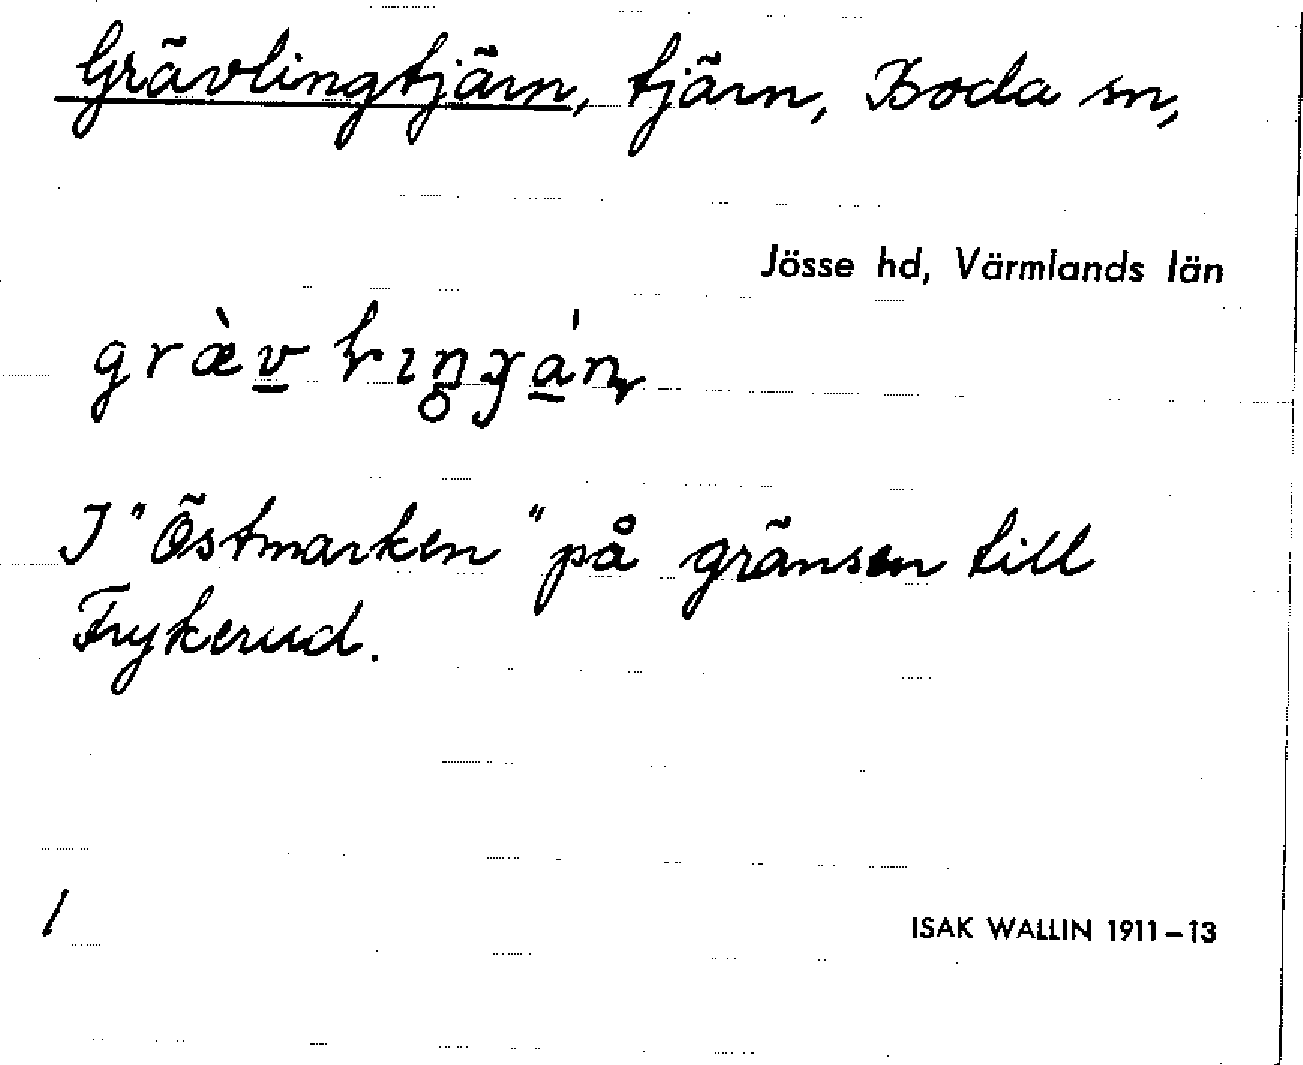 Grävlingtjärn, tjärn, Boda sn,
Jösse hd, Värmlands län
I "Östmarken" på gränsen till
Frykerud.
1
ISAK WALLIN 1911–13